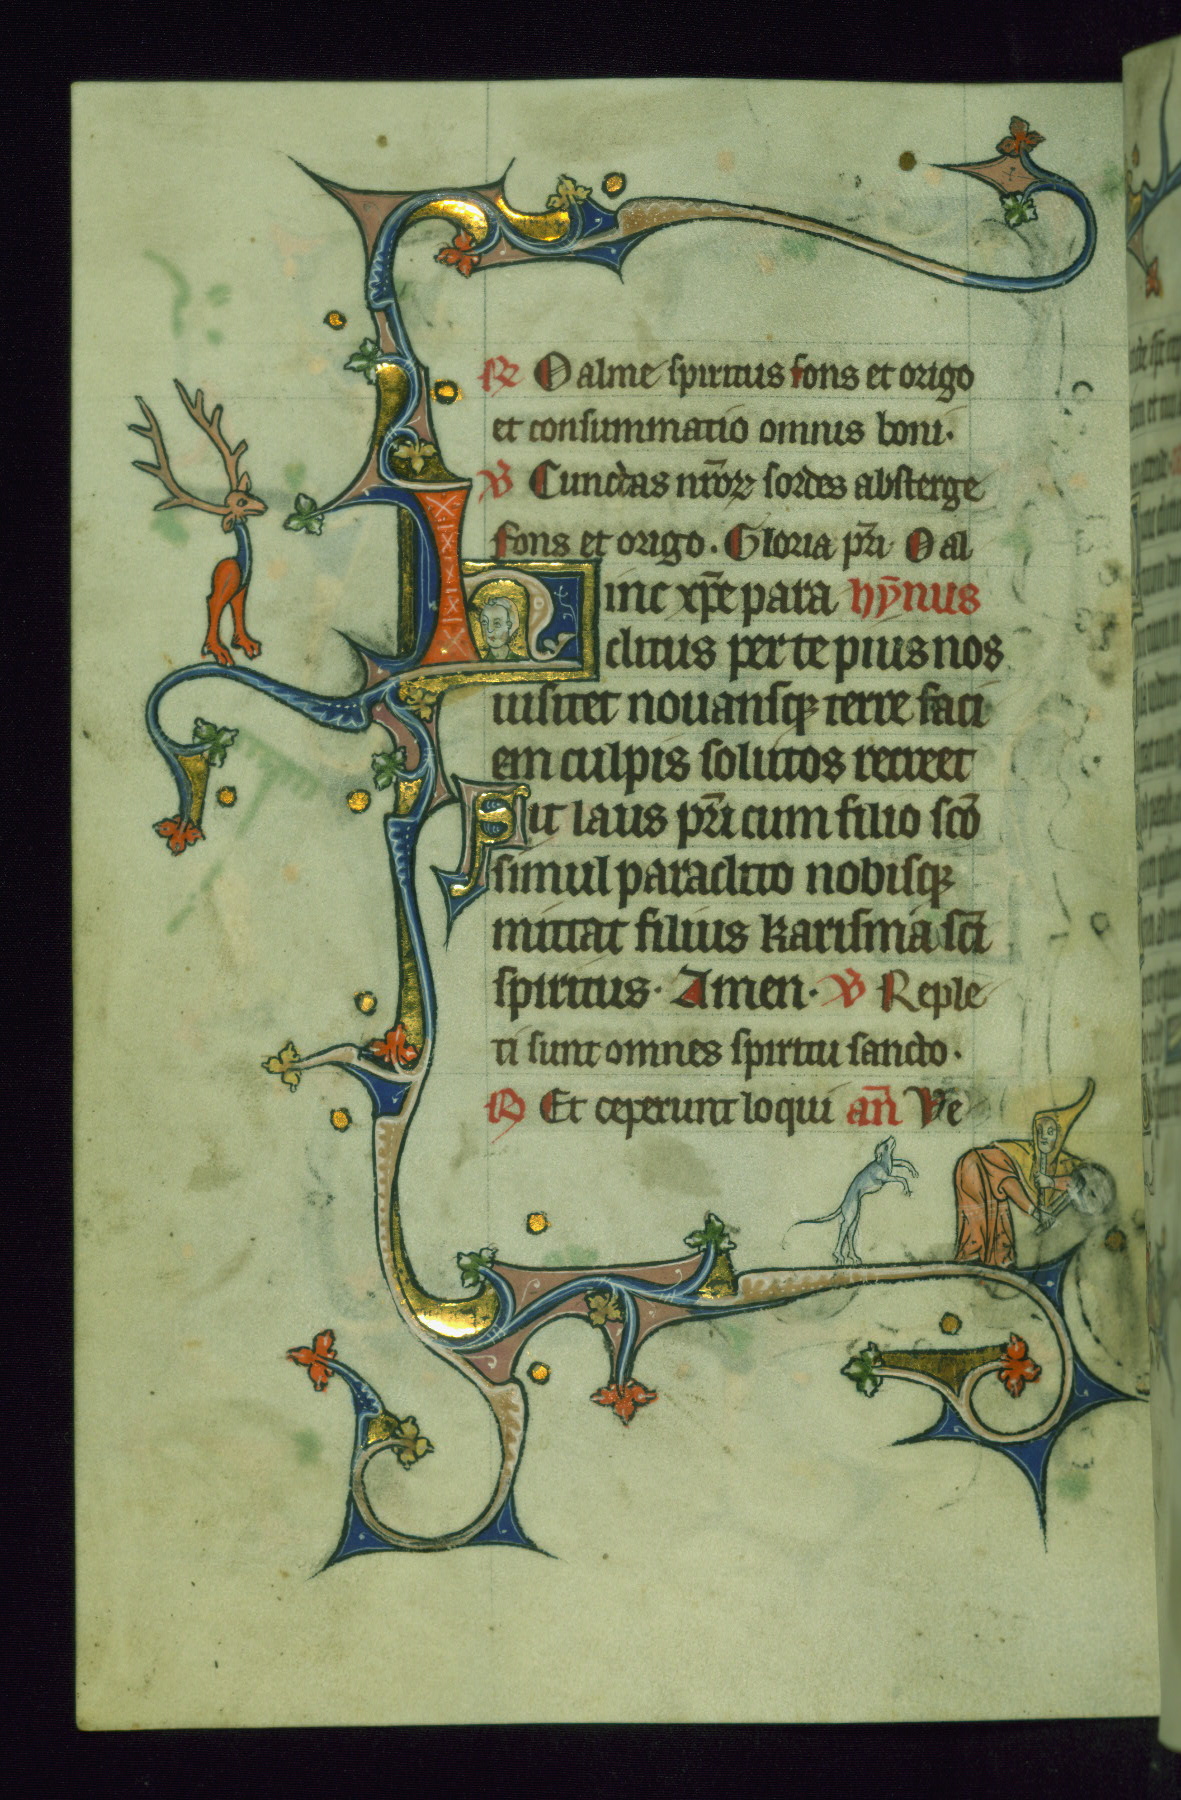 R O alme spiritus fons et origo
et consummatio omnis boni.
V Cunctas nr̄oꝝ sordes absterge
fons et origo. Gloria pr̄i O al
Hinc xp̄e para hȳnus
clitus per te pius nos
uisitet nouansqꝫ terre faci
em culpis solutos recreet
Sit laus pr̄i cum filio scō
simul paraclito nobisqꝫ
mittat filius karisma sc̄i
spiritus. Amen. V Reple
ti sunt omnes spiritu sancto.
R Et ceperunt loqui an̄ Ve